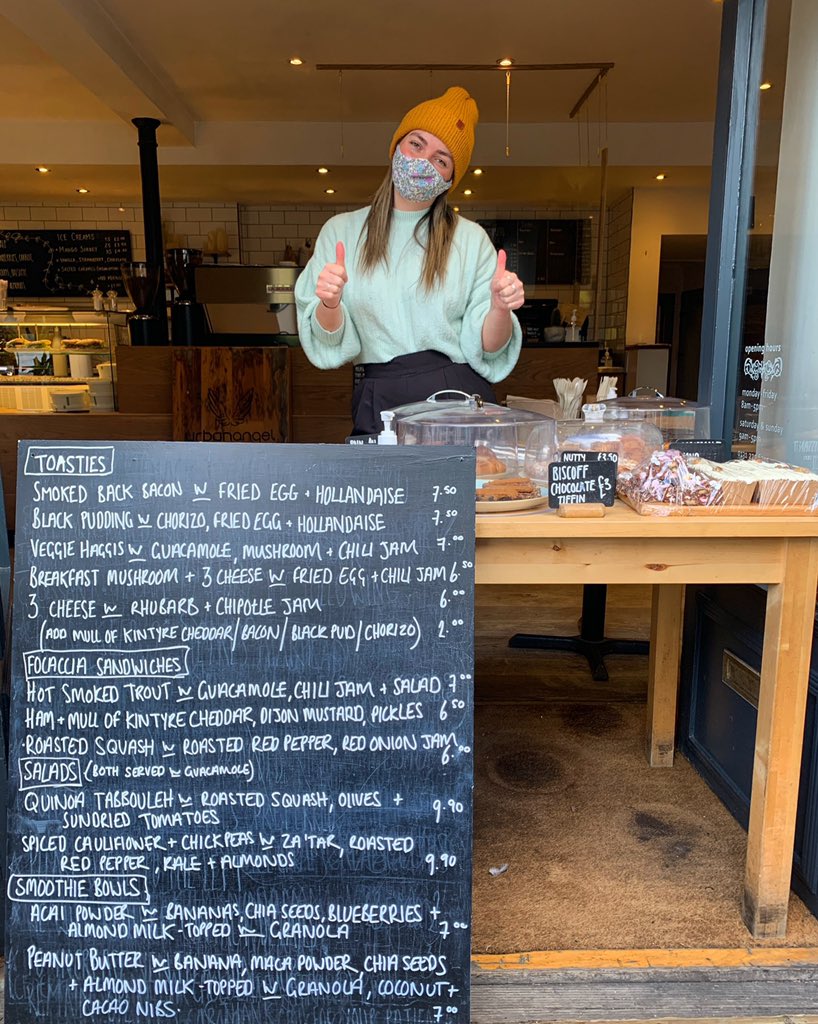 ICE CREAMS
MANGO SORBET
urbanangel
opening hours
monday - friday
8am-5pm
saturday & sunday
NUTTY £3.50
BISCOFF
CHOCOLATE £3
TIFFIN
TOASTIES
SMOKED BACK BACON W FRIED EGG + HOLLANDAISE 7.50
BLACK PUDDING W CHORIZO, FRIED EGG + HOLLANDAISE 7.50
VEGGIE HAGGIS W GUACAMOLE, MUSHROOM + CHILI JAM 7.00
BREAKFAST MUSHROOM + 3 CHEESE W FRIED EGG + CHILI JAM 6.50
3 CHEESE W RHUBARB + CHIPOTLE JAM 6.00
(ADD MULL OF KINTYRE CHEDDAR/BACON/BLACK PUD/CHORIZO) 2.00
FOCACCIA SANDWICHES
HOT SMOKED TROUT W GUACAMOLE, CHILI JAM + SALAD 7.00
HAM + MULL OF KINTYRE CHEDDAR, DIJON MUSTARD, PICKLES 6.50
·ROASTED SQUASH W ROASTED RED PEPPER, RED ONION JAM 6.00
SALADS (BOTH SERVED W GUACAMOLE)
QUINOA TABBOULEH W ROASTED SQUASH, OLIVES + 9.90
SUNDRIED TOMATOES
SPICED CAULIFLOWER + CHICKPEAS W ZA'TAR, ROASTED
RED PEPPER, KALE + ALMONDS 9.90
SMOOTHIE BOWLS
ACAI POWDER W BANANAS, CHIA SEEDS, BLUEBERRIES +
ALMOND MILK - TOPPED W GRANOLA 7.00
PEANUT BUTTER W BANANA, MACA POWDER, CHIA SEEDS
+ ALMOND MILK - TOPPED W GRANOLA, COCONUT +
CACAO NIBS. 7.00